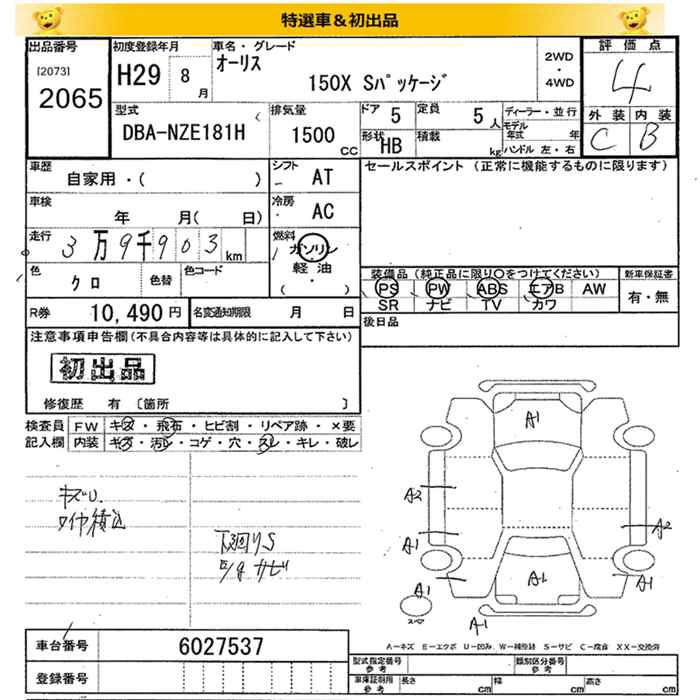 特選車＆初出品
出品番号
[2073]
2065
初度登録年月
H29 8 月
車名・グレード
オーリス
150X Sパッケージ
2WD
・
4WD
評価点
4
外装 内装
C B
型式
DBA-NZE181H
排気量
1500 CC
ドア 5
定員 5 人
形状 HB
積載 kg
ディーラー・並行
モデル年式 年
ハンドル 左・右
車歴
自家用・( )
シフト
AT
セールスポイント (正常に機能するものに限ります)
車検
年 月( 日)
冷房
AC
走行
3万9千903 km
燃料
ガソリン
軽油
( ・ )
色
クロ
色替
色コード
装備品 (純正品に限り○をつけてください)
PS PW ABS エアB AW
SR ナビ TV カワ
新車保証書
有・無
R券 10,490 円
名変通知期限 月 日
後日品
注意事項申告欄 (不具合内容等は具体的に記入して下さい)
初出品
修復歴 有 〔箇所 〕
検査員記入欄
FW キズ・飛石・ヒビ割・リペア跡・×要
内装 キズ・汚レ・コゲ・穴・スレ・キレ・破レ
キズU.
下廻りS
サビ
A1
A2
A1
A2
A1
A1
A1
A1
スペア
A=キズ E=エクボ U=凹み W=補修跡 S=サビ C=腐食 XX=交換済
車台番号 6027537
登録番号
型式指定番号 参考
類別区分番号 参考
車庫証明用 参考
長さ cm
幅 cm
高さ cm